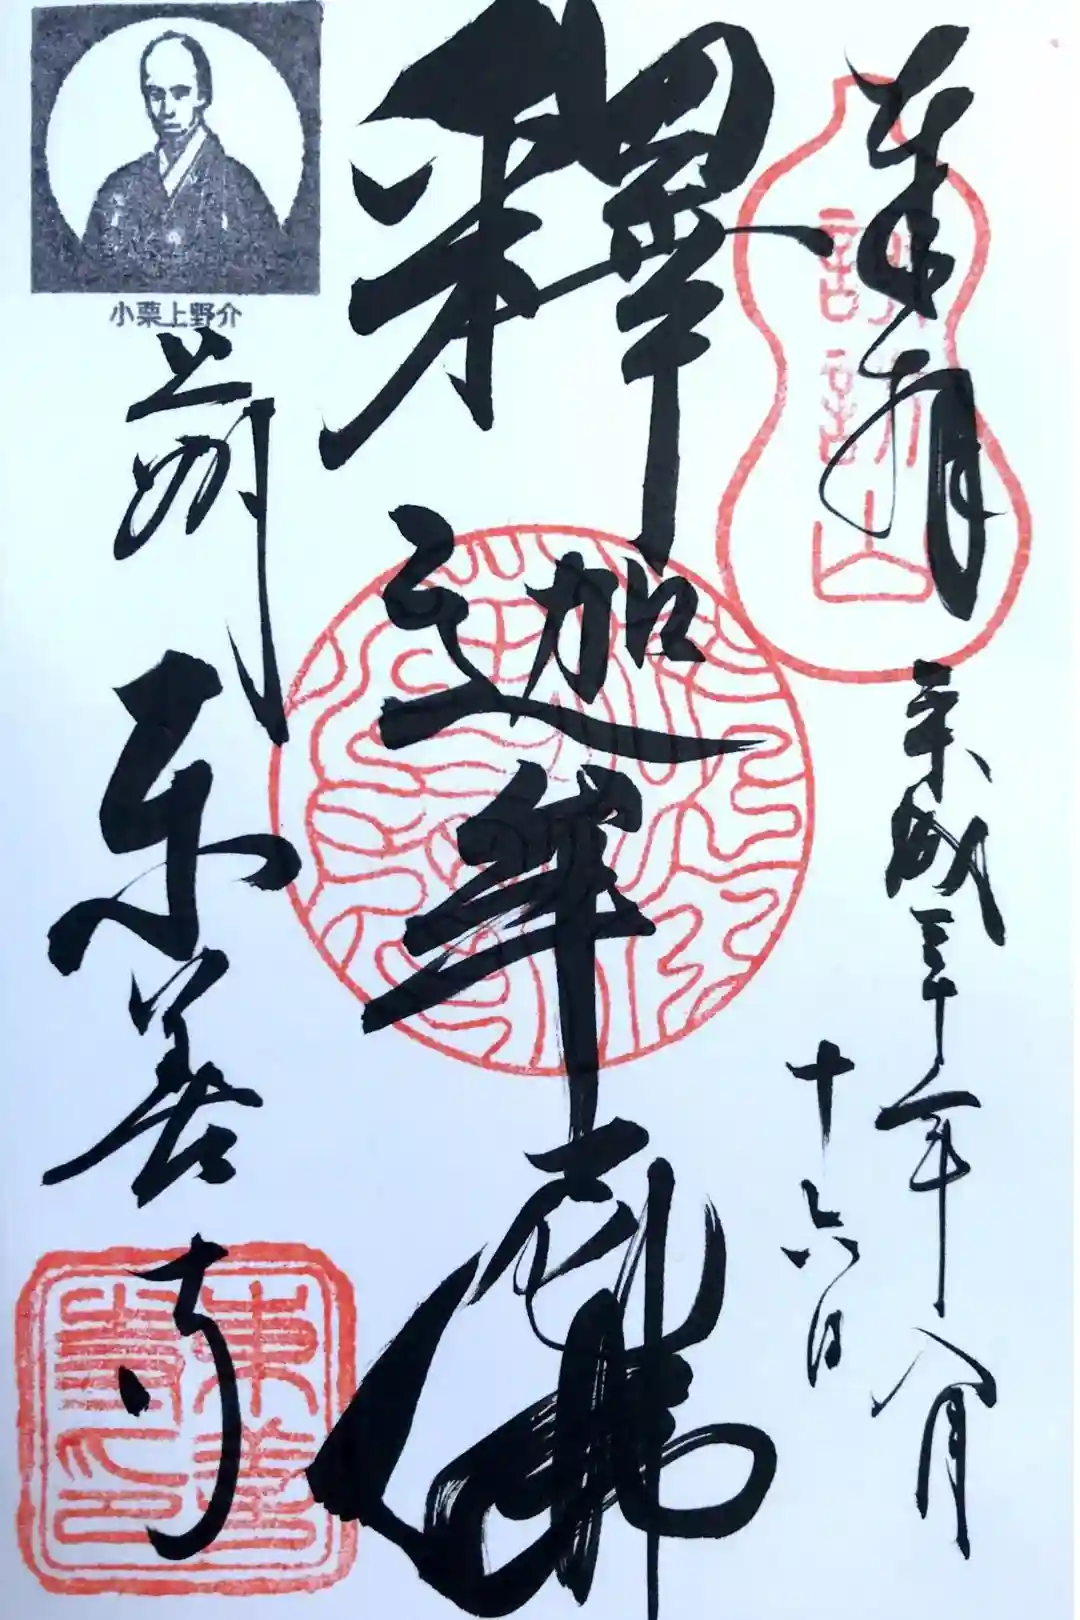 奉拝
諏訪山
平成三十年八月
十六日
釋迦牟尼佛
小栗上野介
上州
東善寺
東善寺印